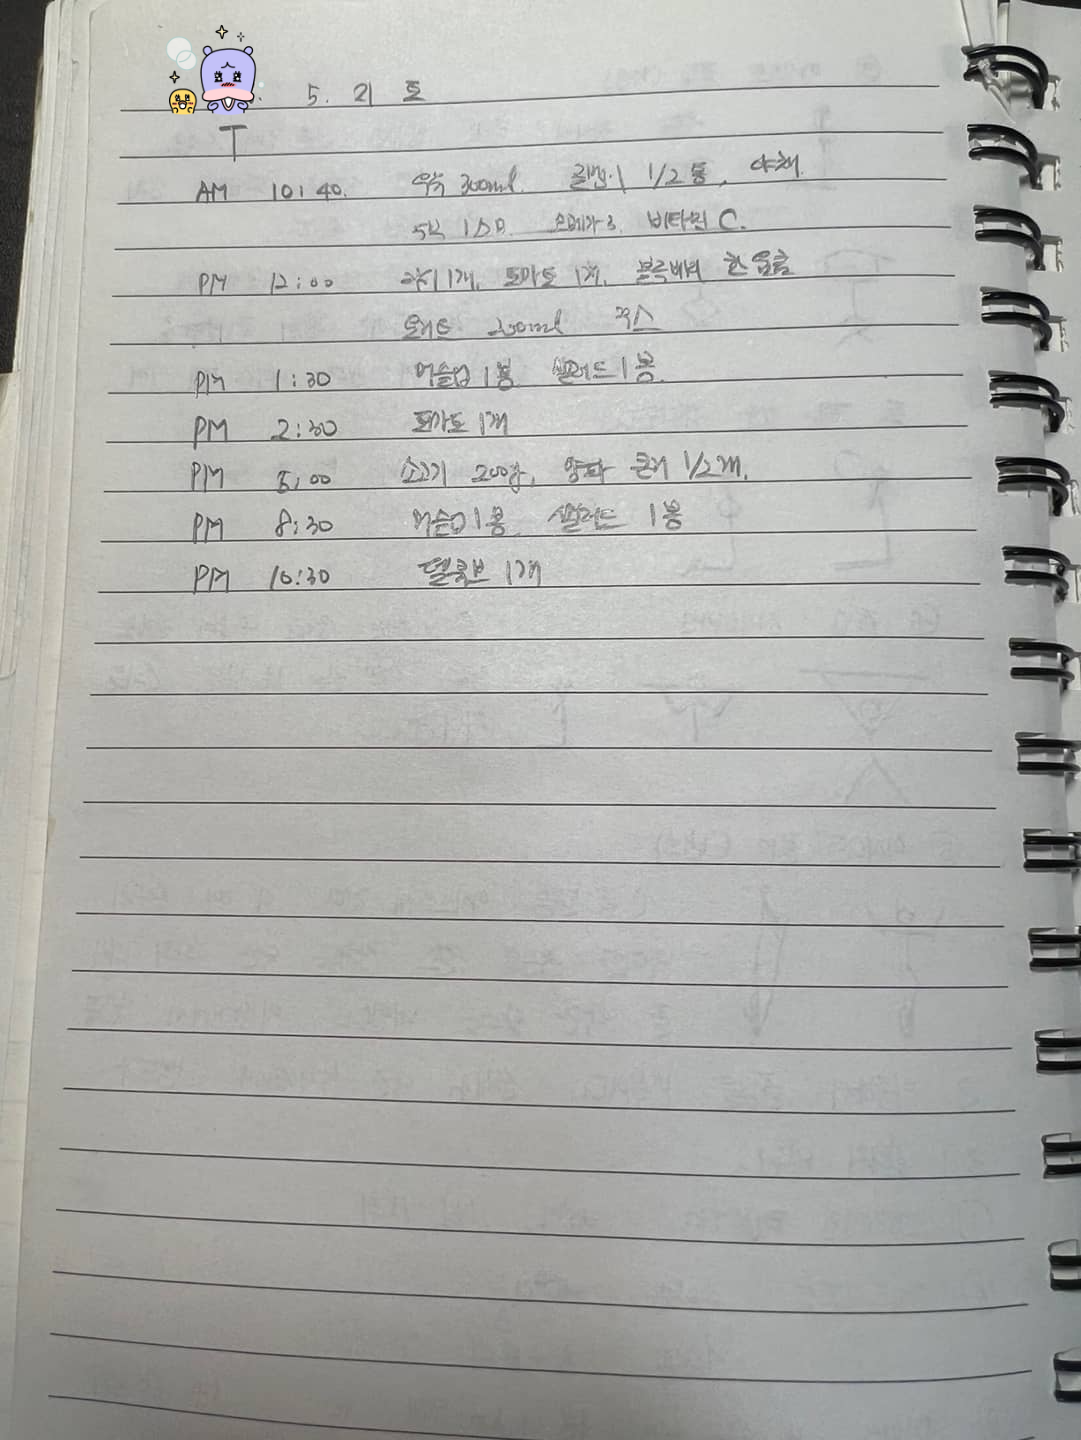 5. 21 토
T
AM 10:40. 우유 300ml. 1/2통, 야채.
오메가3. 비타민 C.
PM 12:00 1개, 토마토 1개, 블루베리 한 움큼
200ml 주스
PM 1:30 머슬업 1봉 샐러드 1봉.
PM 2:30 토마토 1개
PM 6:00 소고기 200g, 양파 큰거 1/2개.
PM 8:30 머슬업 1봉 샐러드 1봉
PM 10:30 1개